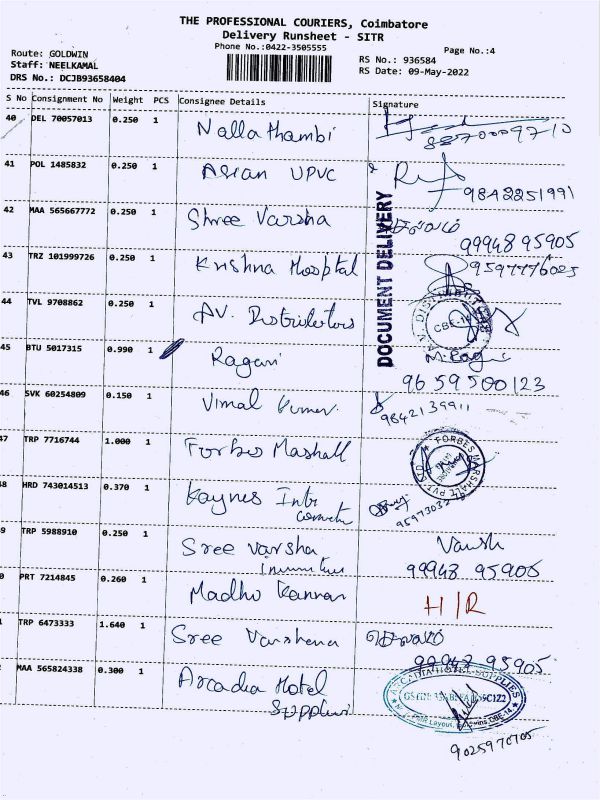 THE PROFESSIONAL COURIERS, Coimbatore
Delivery Runsheet - SITR
Phone No.:0422-3505555
Page No.:4
Route: GOLDWIN
Staff: NEELKAMAL
DRS No.: DCJB93658404
RS No.: 936584
RS Date: 09-May-2022
S No Consignment No Weight PCS Consignee Details Signature
40 DEL 70057013 0.250 1 Nallathambi
41 POL 1485832 0.250 1 Asian UPVC 9842251991
42 MAA 565667772 0.250 1 Shree Varsha செல்வம்
99948 95905
43 TRZ 101999726 0.250 1 Krishna Hosptal
DOCUMENT DELIVERY
44 TVL 9708862 0.250 1 AV. Distributors
A.V. DISTRIBUTORS CBE-14
45 BTU 5017315 0.990 1 Ragavi M.Ragavi
96 59 500123
46 SVK 60254809 0.150 1 Vimal Kumar
9842139911
47 TRP 7716744 1.000 1 Forbes Mashall
FORBES MARSHALL PVT LTD
48 HRD 743014513 0.370 1 Kaynes Intr
9 TRP 5988910 0.250 1 Sree varsha Varsh
99948 95905
0 PRT 7214845 0.260 1 Madhu Kannan H/R
TRP 6473333 1.640 1 Sree Varshena செல்வம்
99943 95905
MAA 565824338 0.300 1 Arcadia Hotel
Suppliers
ARCADIA HOTEL SUPPLIES
9025970705